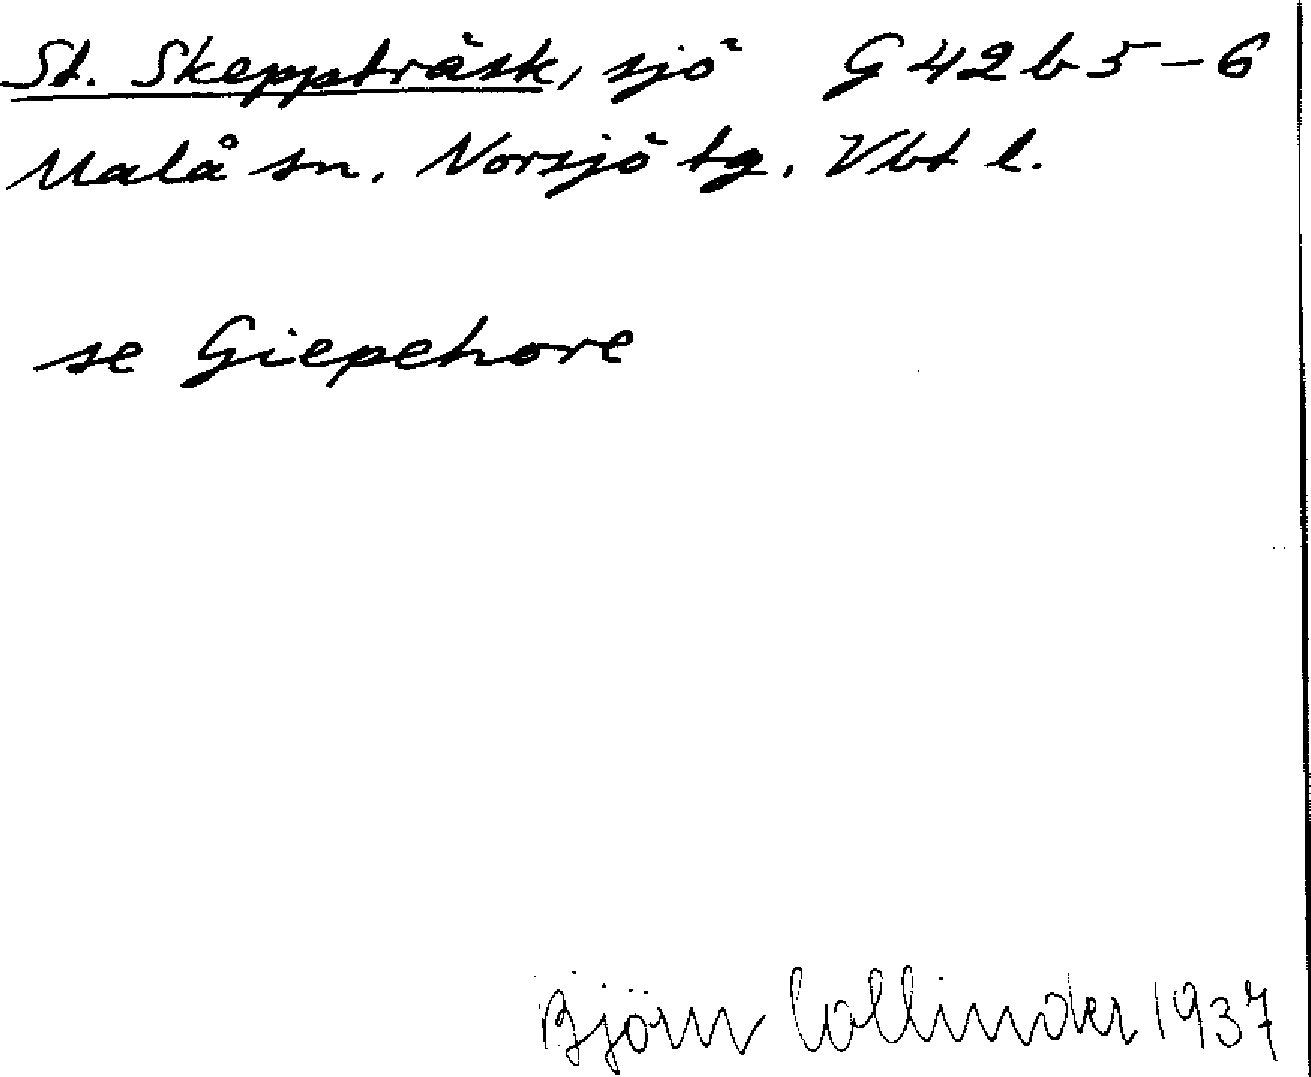 St. Skeppträsk, sjö G 42 b 5-6
Malå sn. Norsjö tg. Vbt l.
se Giepehore
Björn Collinder 1937